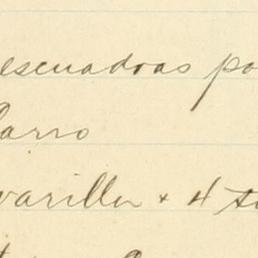 escuadras po
Carro
varilla + 4 t